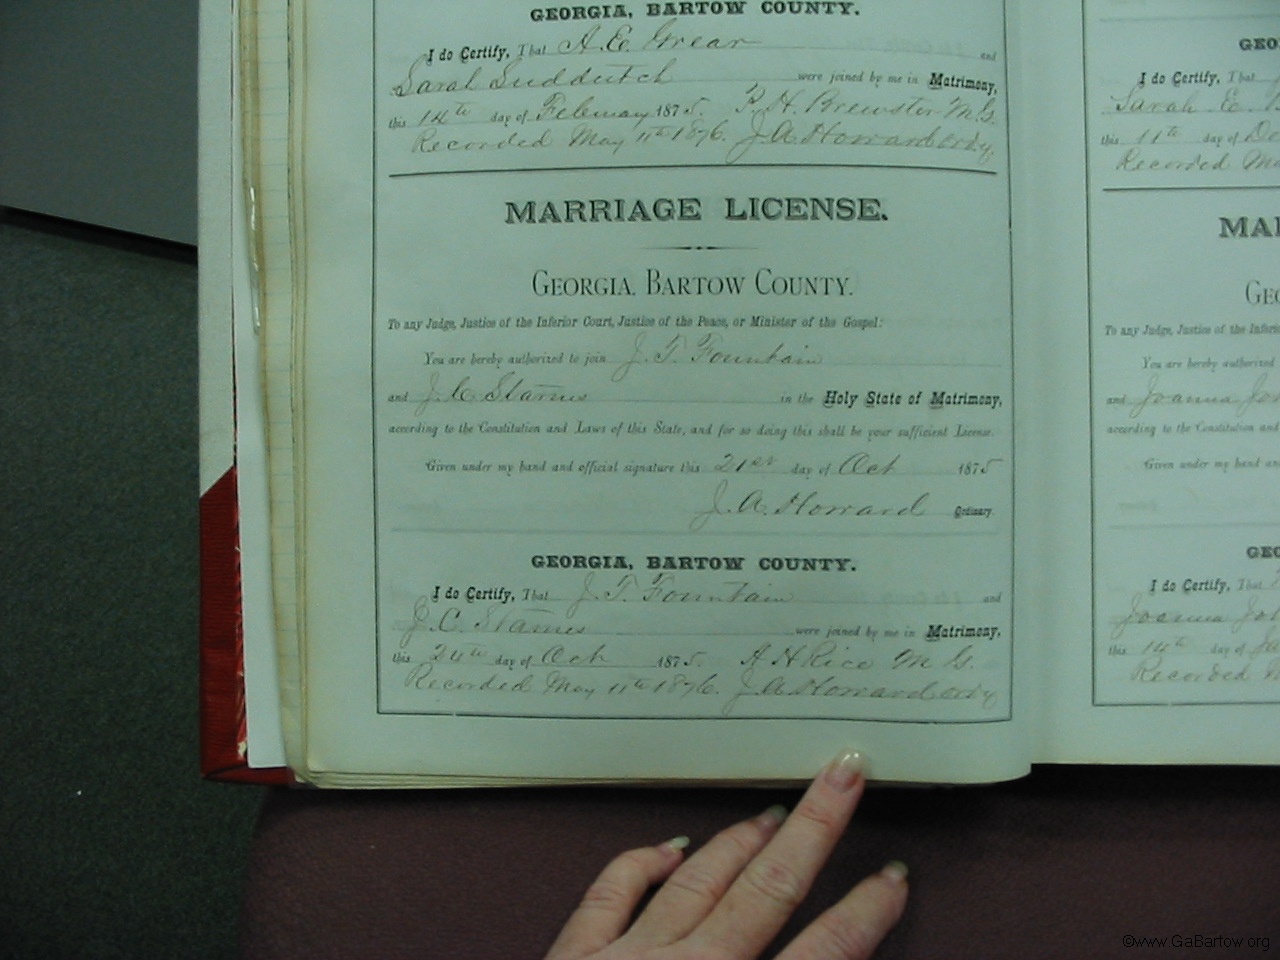 GEORGIA, BARTOW COUNTY.
I do Certify, That A. E. Grear and
Sarah Suddutch were joined by me in Matrimony,
this 14th day of February 1875. P. H. Brewster M.G.
Recorded May 11th 1876. J. A. Howard Ordy.
MARRIAGE LICENSE.
GEORGIA. BARTOW COUNTY.
To any Judge, Justice of the Inferior Court, Justice of the Peace, or Minister of the Gospel:
You are hereby authorized to join J. T. Fountain
and J. C. Starnes in the Holy State of Matrimony,
according to the Constitution and Laws of this State, and for so doing this shall be your sufficient License.
Given under my hand and official signature this 21st day of Oct 1875
J. A. Howard Ordinary.
GEORGIA, BARTOW COUNTY.
I do Certify, That J. T. Fountain and
J. C. Starnes were joined by me in Matrimony,
this 24th day of Oct 1875. A H Rice M G.
Recorded May 11th 1876. J. A. Howard Ordy
GEO
I do Certify, That
Sarah. E.
this 11th day of De
Recorded Ma
MAR
GEO
To any Judge, Justice of the Inferio
You are hereby authorized
and Joanna Jo
according to the Constitution and
Given under my hand and
GEO
I do Certify, That
Joanna Jo
this 14th day of Ja
Recorded M
©www.GaBartow.org